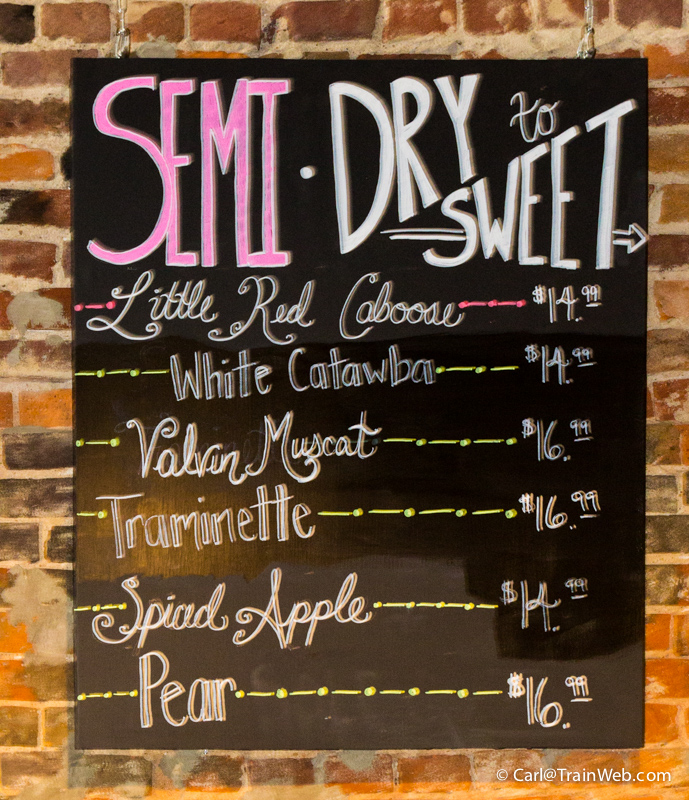 SEMI-DRY to SWEET
Little Red Caboose $14.99
White Catawba $14.99
Valvin Muscat $16.99
Traminette $16.99
Spiced Apple $14.99
Pear $16.99
© Carl@TrainWeb.com